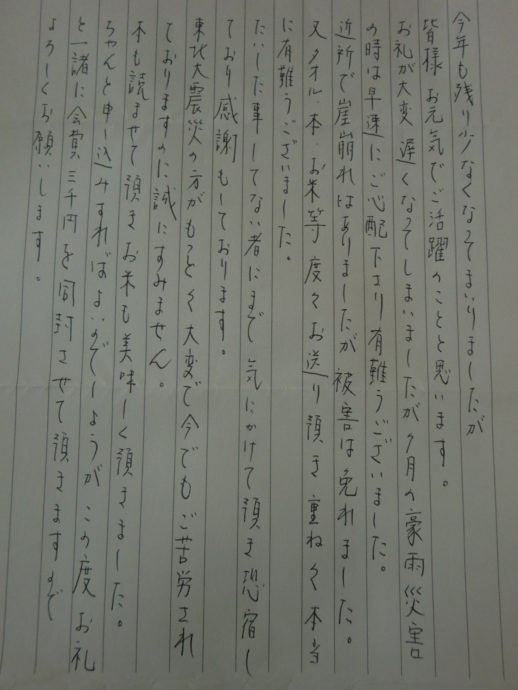 今年も残り少なくなってまいりましたが
皆様お元気でご活躍のことと思います。
お礼が大変遅くなってしまいましたが7月の豪雨災害
の時は早速にご心配下さり有難うございました。
近所で崖崩れはありましたが被害は免れました。
又タオル・本・お米等度々お送り頂き重ね々本当
に有難うございました。
たいした事してない者にまで気にかけて頂き恐宿し
ており感謝もしております。
東北大震災の方がもっと々大変で今でもご苦労され
ておりますのに誠にすみません。
本も読ませて頂きお米も美味しく頂きました。
ちゃんと申込みすればよいのでしょうがこの度お礼
と一諸に会費三千円を同封させて頂きますので
よろしくお願いします。